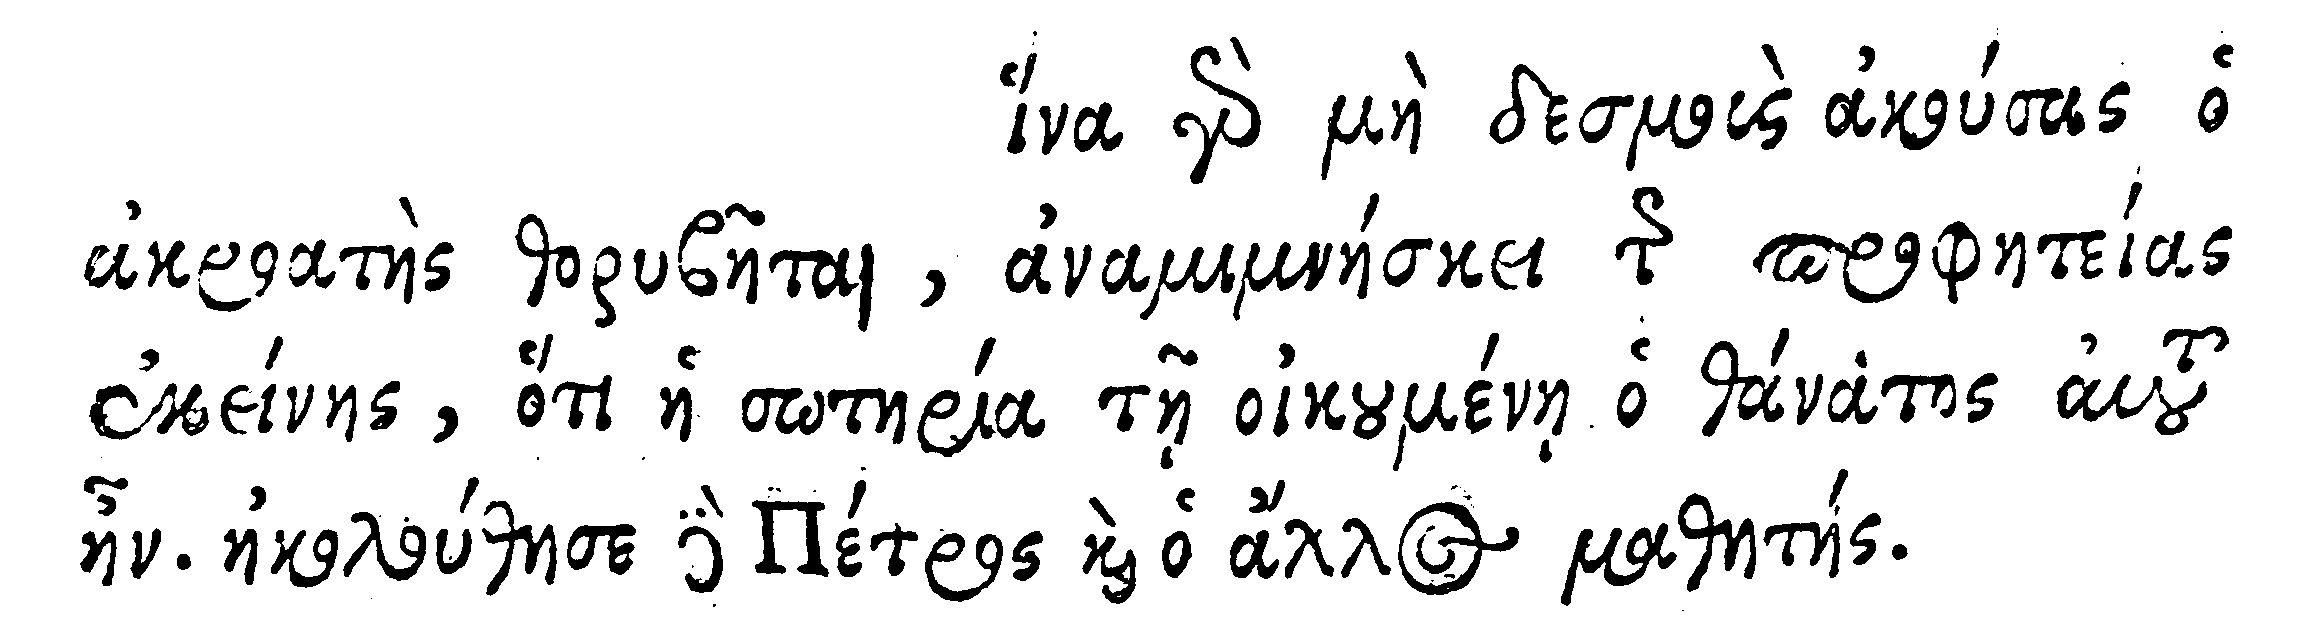 ἵνα γὰρ μὴ δεσμοὺς ἀκούσας ὁ
ἀκροατὴς θορυβῆται, ἀναμιμνήσκει τῆς προφητείας
ἐκείνης, ὅτι ἡ σωτηρία τῇ οἰκουμένῃ ὁ θάνατος αὐτοῦ
ἦν. ἠκολούθησε δὲ Πέτρος καὶ ὁ ἄλλος μαθητής.